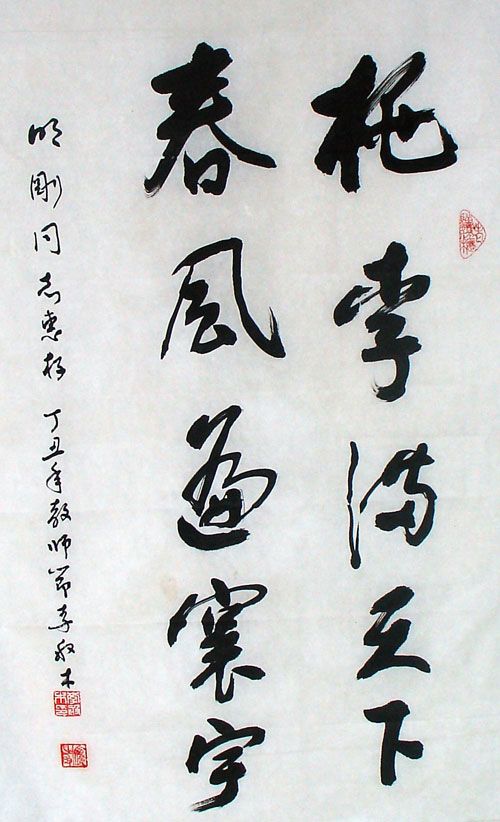 桃李满天下
春风遍寰宇
明刚同志惠存 丁丑年教师节李牧木